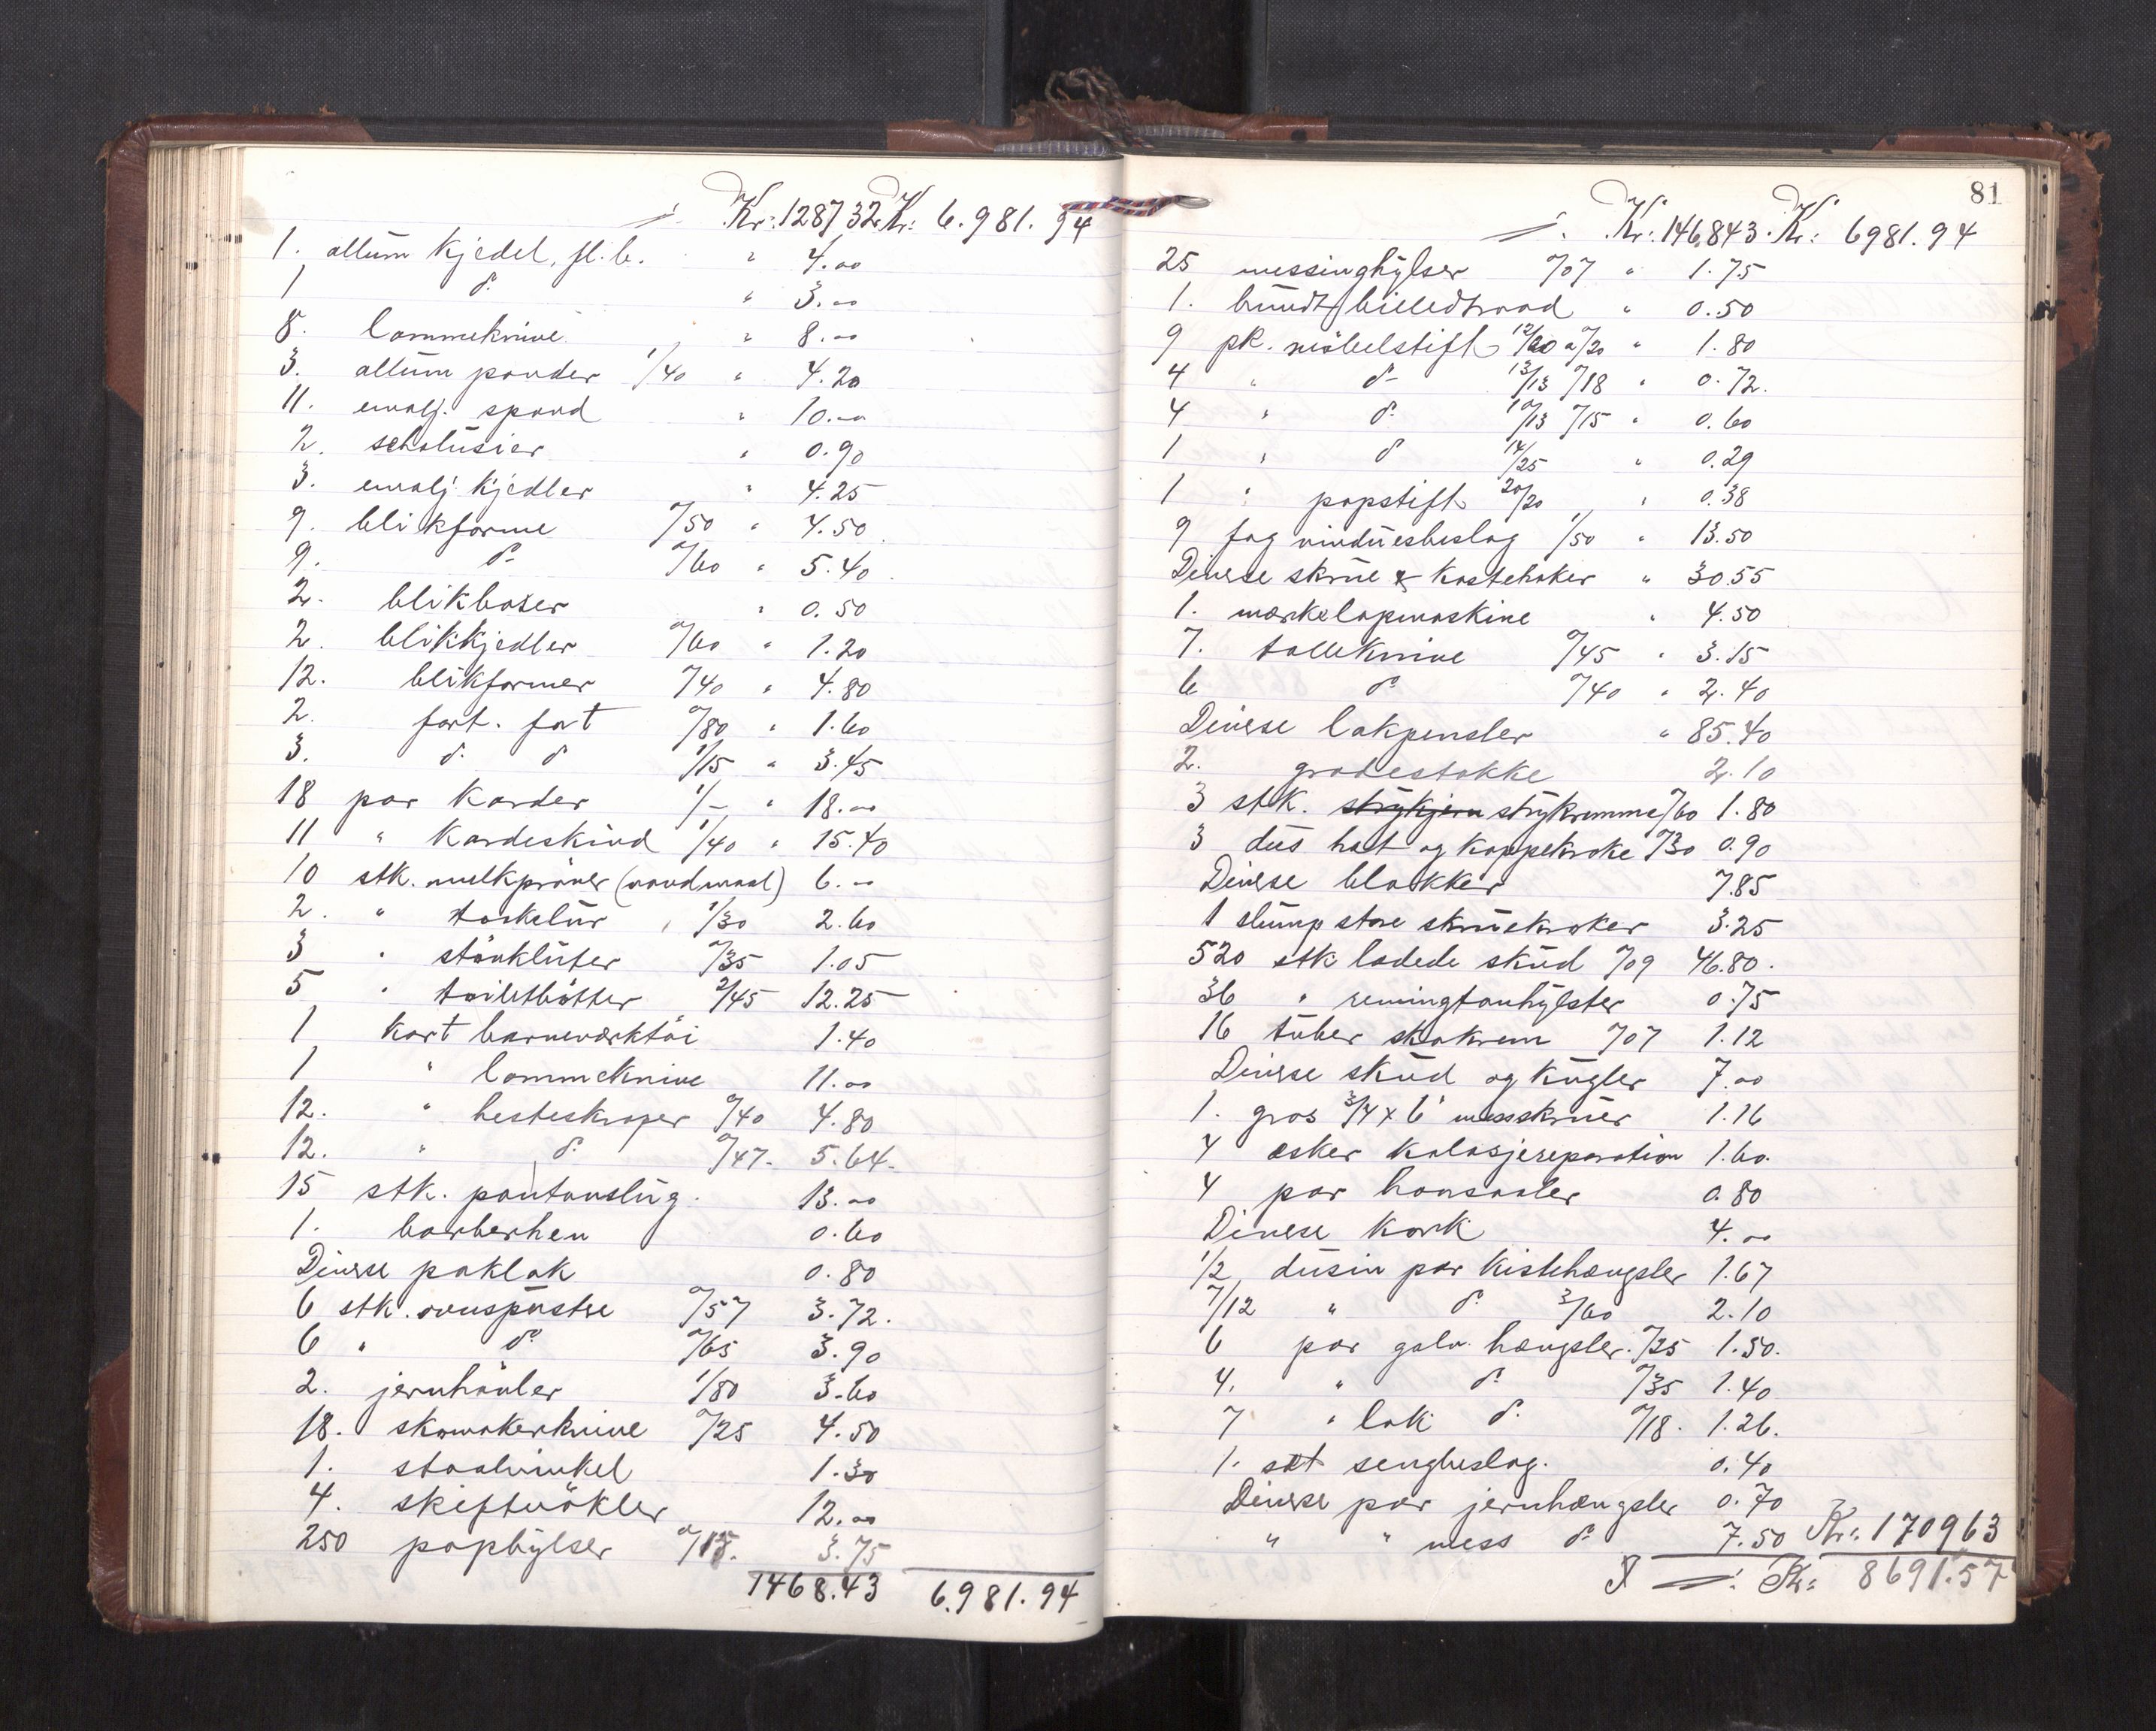 Kr: 1287 32 Kr: 6.981.94
1. allum kjedel, fl. b. " 4.00
1 do " 3.00
8. lommeknive " 8.00
3. allum pander 1/40 " 4.20
11. emalj. spand " 10.00
2. schalusier " 0.90
3. emalj. kjedler " 4.25
9. blikforme 0/50 " 4.50
9. do 0/60 " 5.40
2. blikbokser " 0.50
2. blikkjedler 0/60 " 1.20
12. blikformer 0/40 " 4.80
2. fort. fat 0/80 " 1.60
3. do do 1/15 " 3.45
18 par karder 1/- " 18.00
11 " kardeskind 1/40 " 15.40
10 stk. melkprøver (vandmaal) 6.00
2. " 1/30 2.60
3 " støvkluter 0/35 1.05
5 " toiletbøtter 2/45 12.25
1 kart barneverktøi 1.40
1 " lommeknive 11.00
12. " hesteskraper 0/40 4.80
12. " do 0/47. 5.64.
15 stk. 13.00
1. barberhen 0.60
Diverse paklak 0.80
6 stk. ovnspustre 0/57 3.72.
6 " do 0/65 3.90
2. jernhøvler 1/80 3.60
18. skomakerknive 0/25 4.50
1. staalvinkel 1.30
4. skiftnøkler 12.00
250 paphylser 3.75
1468.43 6.981.94
81
Kr: 146,843. Kr: 6981.94
25 messinghylser 0/07 " 1.75
1. bundt billedtraad " 0.50
9 pk. møbelstift 12/20 a 0/20 " 1.80
4 " do 13/13 0/18 " 0.72.
4 " do 10/13 0/15 " 0.60
1 " do 14/25 " 0.29
1 " papstift 20/20 " 0.38
9 fag vinduesbeslag 1/50 " 13.50
Diverse skrue & kastehaker " 30.55
1. merkelapmaskine " 4.50
7. tolleknive 0/45 " 3.15
6 do 0/40 " 2.40
Diverse lakpensler " 85.40
2. gradestokke 2.10
3 stk. strykjern strykremme 0/60 1.80
3 dus hat og kappekroke 0/30 0.90
Diverse blokker 7.85
1 slump store skruekroker 3.25
520 stk ladede skud 0/09 46.80.
36 " remingtonhylster 0.75
16 tuber skokrem 0/07 1.12
Diverse skud og kugler 7.00
1. gros 3/4 x 6 messskruer 1.16
4 esker kalosjereparation 1.60.
4 par haansaaler 0.80
Diverse kork 4.00
1/2 dusin par kistehængsler 1.67
7/12 " do 3/60 2.10
6 par galv. hængsler. 0/25 1.50.
4. " do 0/35 1.40
7 " lak do 0/18. 1.26.
1. set sengbeslag. 0.40
Diverse par jernhængsler 0.70
" " mess do 7.50 Kr: 170963
Kr: 8691.57